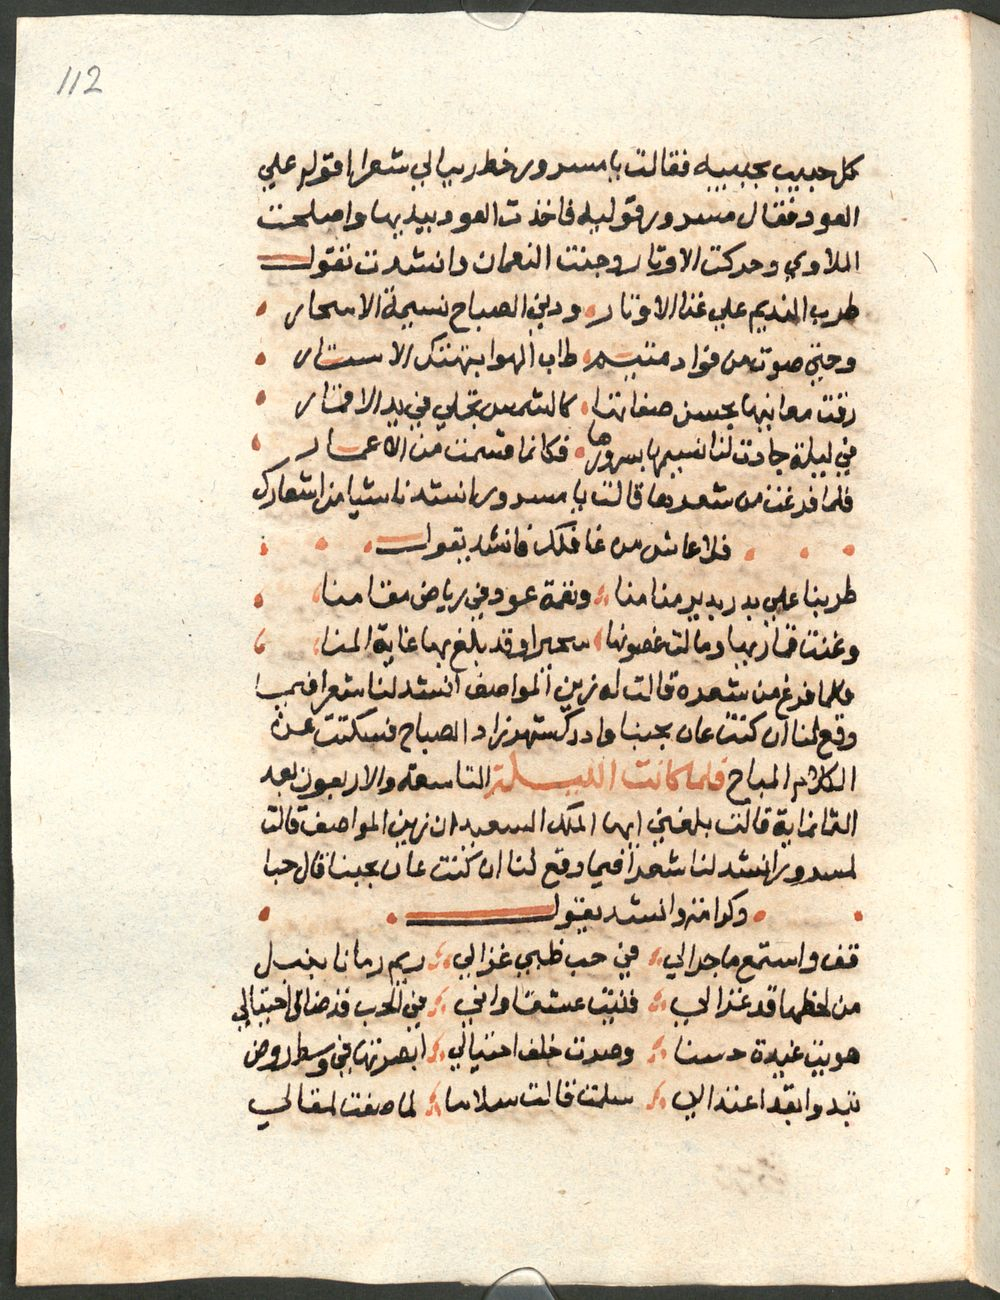 112
كل حبيب بحبيبه فقالت يا مسرور خطر ببالي شعرا اقوله علي
العود فقال مسرور قوليه فاخذت العود بيديها واصلحت
الملاوي وحركت الاوتار وحنت النعمان وانشدت تقول
طرب النديم علي غنا الاوتار ودني الصباح نسيمة الاسحار
وحنين صوت من فواد متيم طاب الهوا بتهتك الاستار
رقت معانيها بحسن صفاتها كالشمس تجلي في يد الاقمار
في ليلة جادت لنا نسيمها بسرورها فكانما قسمت من الاعمار
فلما فرغت من شعرها قالت يا مسرور انشدنا شيا من اشعارك
فلا عاش من عافلك فانشد يقول
طربنا علي بدر يدير منامنا ونغمة عود في رياض مقامنا
وغنت قمازيها ومالت غصونها سحيرا وقد بلغ بها غاية المنا
فلما فرغ من شعره قالت له زين المواصف انشد لنا شعرا فيما
وقع لنا ان كنت عان بحبنا وادرك شهرزاد الصباح فسكتت عن
الكلام المباح فلما كانت الليلة التاسعة والاربعون بعد
الثمانماية قالت بلغني ايها الملك السعيد ان زين المواصف قالت
لمسرور انشد لنا شعرا فيما وقع لنا ان كنت عان بحبنا قال حبا
وكرامة وانشد يقول
قف واستمع ما جرالي في حب ظبي غزالي ريم رمانا بنبل
من لحظها قد غزالي فنيت عشقا واني في الحب قد ضاق احتيالي
هويت غيدة حسنا وصدت خلف احتيالي ابصرتها في وسط روض
تبدوا بقد اعتدالي سلمت قالت سلاما لما صغت لمقالي